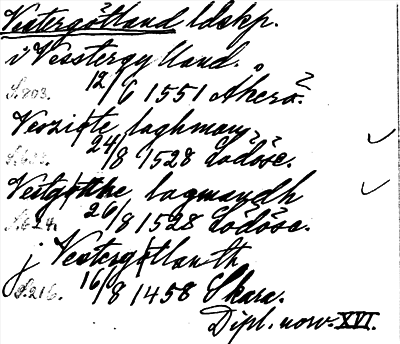 Vestergötland ldskp.
i Vesstergylland.
S. 803. 12/6 1551 Åkerö.
laghman,
24/8 1528 Lödöse.
lagmandh
S. 624. 26/8 1528 Lödöse.
j Vestergøtlanth
S. 216. 16/8 1458 Skara.
Dipl. norv. XVI.